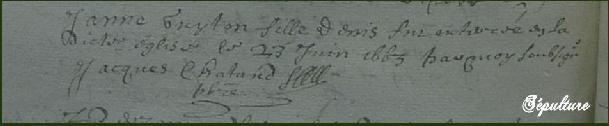 Janne Gryton fille Denis fut enterrée en la
dicte église le 23 Juin 1663 par moy soubsigné
Jacques Chatand
pbre
Sépulture